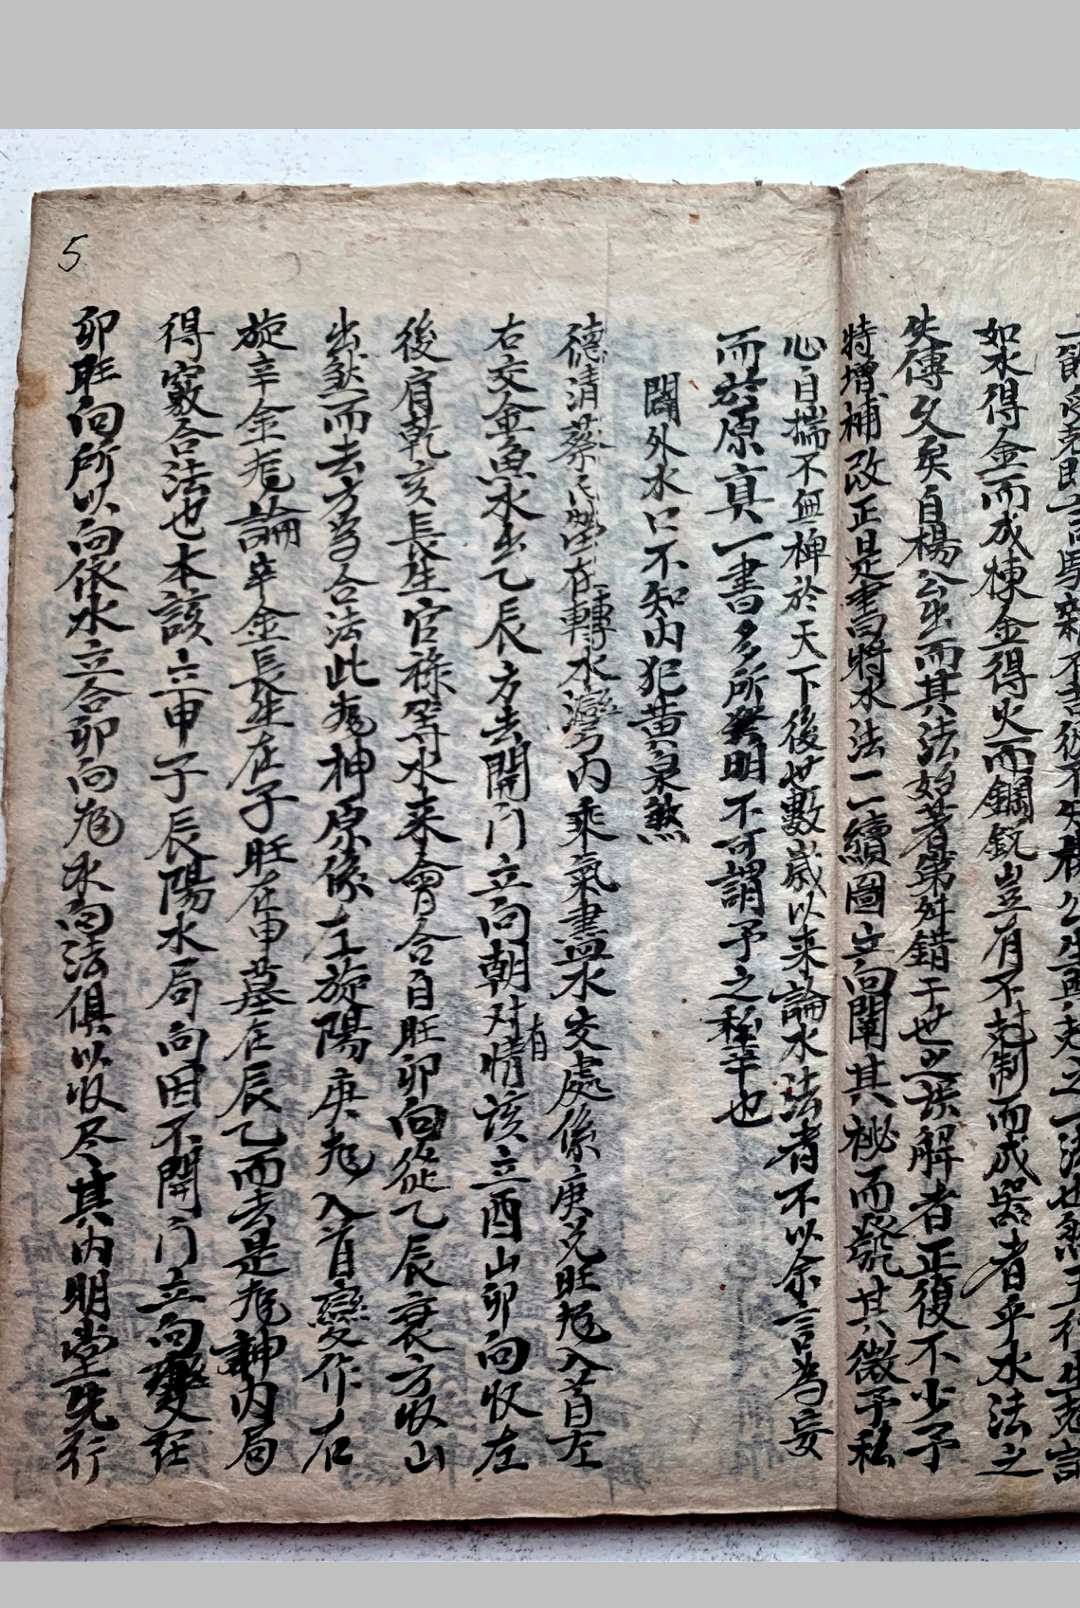 如水得金而成棟金得火而鋼銳豈有不尅制而成器者乎水法之
失傳久矣自楊公出而其法始著第舛錯于世之誤解者正復不少予
特增補改正是書將水法二續圖立向闡其秘而發其微予私
心自揣不無裨於天下後世數歲以来論水法者不以余言為妄
而於原真一書多所發明不可謂予之也
闢外水口不知内犯黄泉煞
德清蔡氏塋在轉水灣内乘氣盡水交處係庚兑旺龙入首左
右交金魚水出乙辰方去開门立向朝对有情該立酉山卯向收左
後肩乾亥長生官禄等水来會合自旺卯向從乙辰衰方收山
出煞而去方為合法此龙神原係左旋陽庚龙入首變作右
旋辛金龙論辛金長生在子旺在申墓在辰乙而去是龙神内局
得竅合法也本該立申子辰陽水局向因不開门立向變在
卯旺向所以向依水立合卯向龙水向法俱以收尽其内明堂先行
5